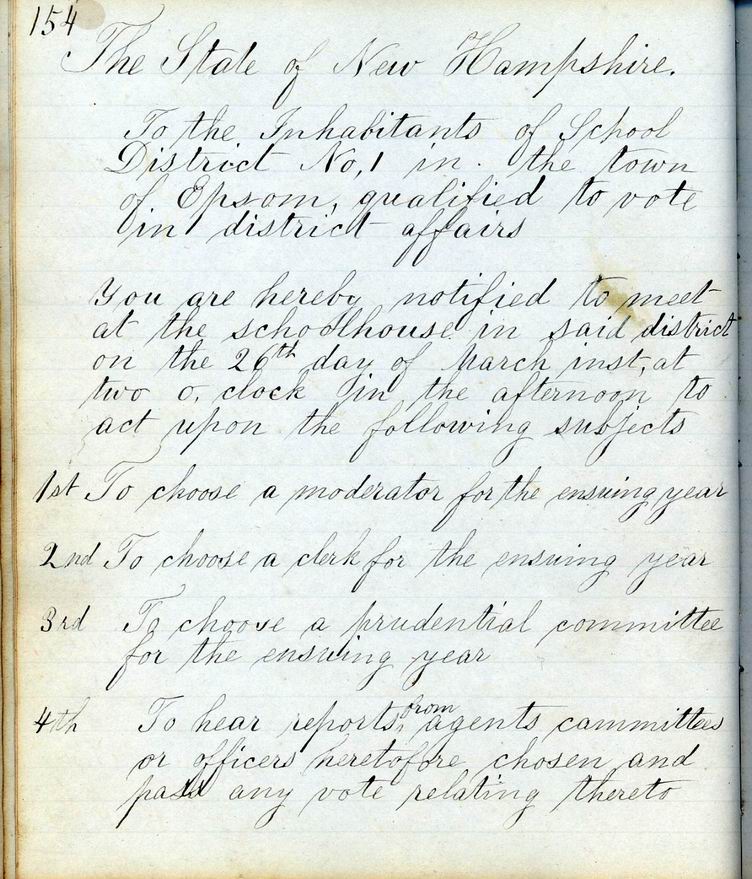 154
The State of New Hampshire.
To the Inhabitants of School
District No, 1 in. the town
of Epsom, qualified to vote
in district affairs
You are hereby notified to meet
at the schoolhouse in said district
on the 26th day of March inst, at
two o, clock in the afternoon to
act upon the following subjects
1st To choose a moderator for the ensuing year
2nd To choose a clerk for the ensuing year
3rd To choose a prudential committee
for the ensuing year
4th To hear reports, from agents committees
or officers heretofore chosen and
pass any vote relating thereto